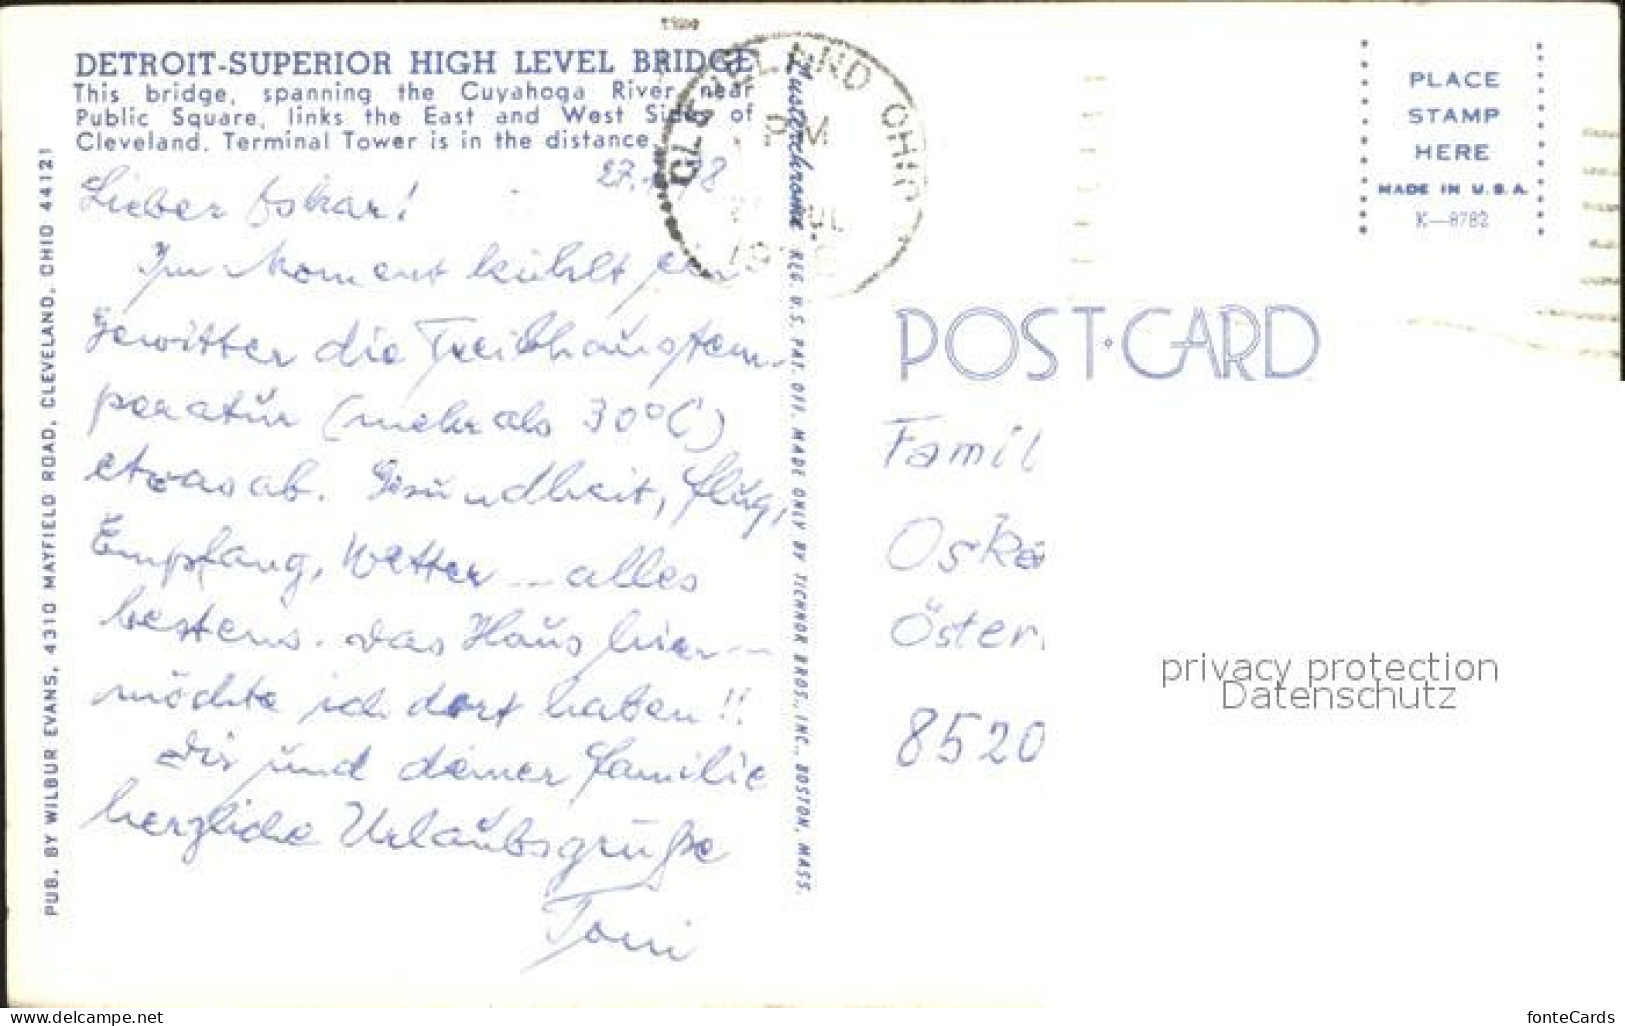 DETROIT-SUPERIOR HIGH LEVEL BRIDGE
This bridge, spanning the Cuyahoga River near
Public Square, links the East and West Sides of
Cleveland. Terminal Tower is in the distance.
Lieber Oskar!
Im Moment kühlt ein
Gewitter die Treibhaustem-
peratur (mehr als 30°C)
etwas ab. Gesundheit, Flug,
Empfang, Wetter -- alles
bestens. Das Haus hier --
möchte ich dort haben!!
Dir und deiner Familie
herzliche Urlaubsgrüße
Toni
PUB. BY WILBUR EVANS, 4310 MAYFIELD ROAD, CLEVELAND, OHIO 44121
Lusterchrome REG. U.S. PAT. OFF. MADE ONLY BY TICHNOR BROS., INC., BOSTON, MASS.
CLEVELAND OHIO
PM
PLACE
STAMP
HERE
MADE IN U.S.A.
K-8782
POST·CARD
Famil
Oska
Öster
8520
privacy protection
Datenschutz
www.delcampe.net
fonteCards